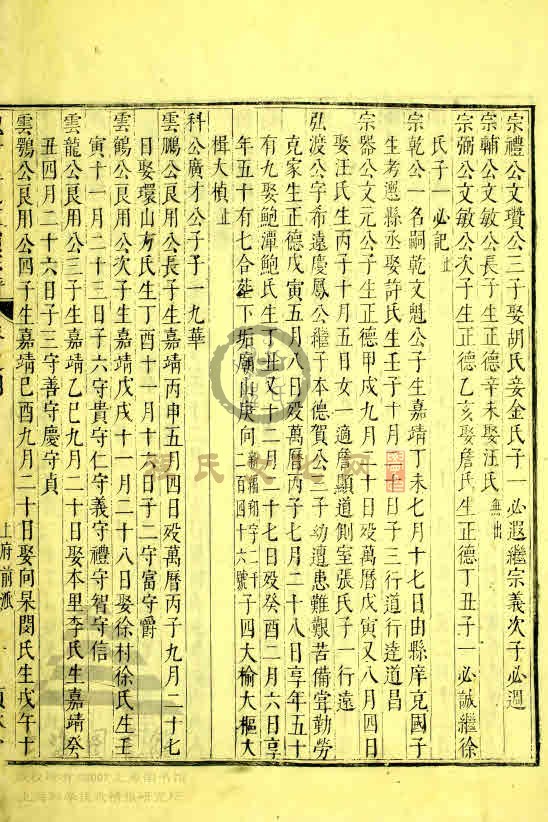 宗禮公文瓚公三子娶胡氏妾金氏子一必遐繼宗義次子必週
宗輔公文敏公長子生正德辛未娶汪氏無出
宗弼公文敏公次子生正德乙亥娶詹氏生正德丁丑子一必誠繼徐
氏子一必記止
宗乾公一名嗣乾文魁公子生嘉靖丁未七月十七日由縣庠克國子
生考選縣丞娶許氏生壬子十月十日子三行道行達道昌
宗器公文元公子生正德甲戌九月二十日歿萬曆戊寅又八月四日
娶汪氏生丙子十月五日女一適詹顯道側室張氏子一行遠
弘渡公字布遠慶鳳公繼子本德賀公三子幼遭患難艱苦備嘗勤勞
克家生正德戊寅五月八日歿萬曆丙子七月二十八日享年五十
有九娶鮑潭鮑氏生丁丑又十二月二十七日歿癸酉二月六日享
年五十有七合葬下垢廟山庚向 二百四十六號子四大榆大樞大
楫大楨止
科公廣才公子子一九華
雲鵬公良用公長子生嘉靖丙申五月四日歿萬曆丙子九月二十七
日娶環山方氏生丁酉十一月十六日子二守富守爵
雲鶴公良用公次子生嘉靖戊戌十一月二十八日娶徐村徐氏生壬
寅十一月二十三日子六守貴守仁守義守禮守智守信
雲龍公良用公三子生嘉靖乙巳九月二十日娶本里李氏生嘉靖癸
丑四月二十六日子三守善守慶守貞
雲鶚公良用公四子生嘉靖己酉九月二十日娶向杲閔氏生戊午十
上府前派